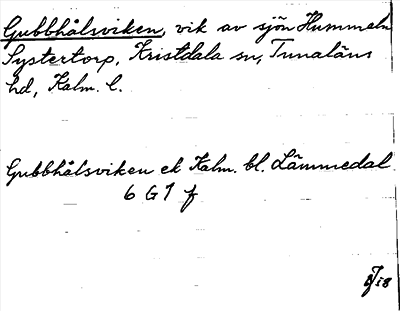 Gubbhålsviken, vik av sjön Hummeln
Systertorp, Kristdala sn, Tunaläns
hd, Kalm. l.
Gubbhålsviken ek Kalm. bl. Lämmedal
6 G 7 f